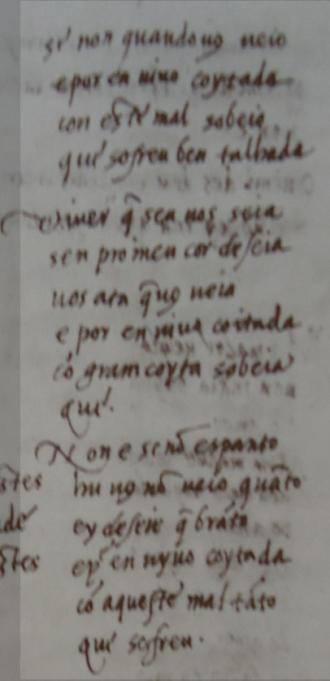 se non quando uꝯ ueio
e por en uiuo coytada
con este mal sobeio
que sofreu ben talhada
Viuer q̃ sen uos seia
sen pro meu cor deseia
uos ata q̃ uꝯ ueia
e por en uiua coitada
cõ gram coyta sobeia
que.
Non e senõ espanto
hu uꝯ nõ ueio quãto
ey deseie q̃brãto
e p en uyuo coytada
cõ aqueste mal tãto
que sofreu.
stes
de
stes